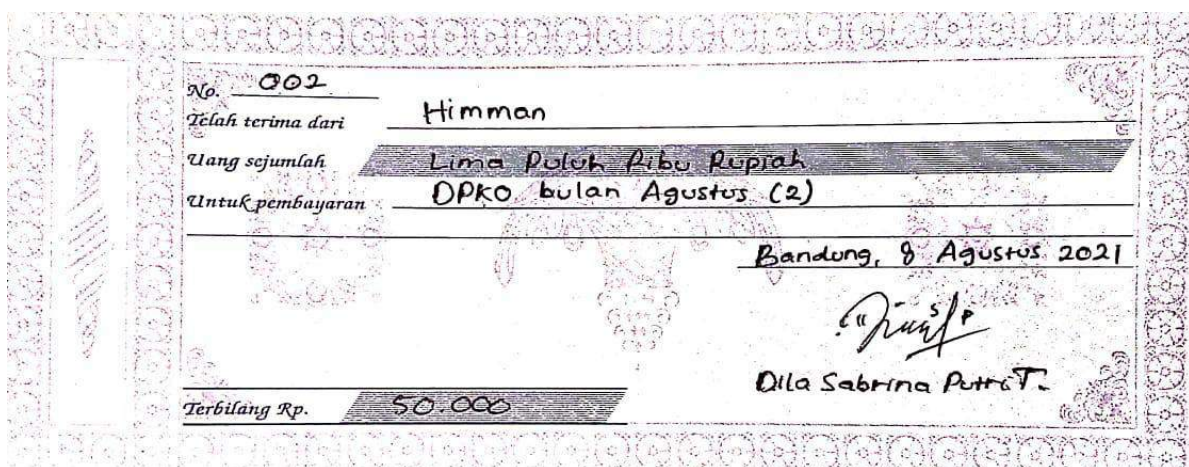 No. 002
Telah terima dari Himman
Uang sejumlah Lima Puluh Ribu Rupiah
Untuk pembayaran DPKO bulan Agustus (2)
Bandung, 8 Agustus 2021
Dila Sabrina Putri T.
Terbilang Rp. 50.000